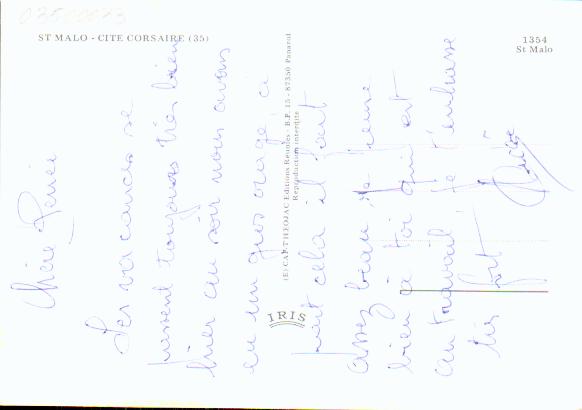 03500023
ST MALO - CITE CORSAIRE (35)
1354
St Malo
(E) CAP-THEOJAC Editions Réunies - B.P. 15 - 87350 Panazol
Reproduction interdite
IRIS
Chère Renée
Les vacances se
passent toujours très bien
hier au soir nous avons
eu un gros orage a
part cela il fait
assez beau. Je pense
bien à toi qui est
au travail. Je t'embrasse
très fort